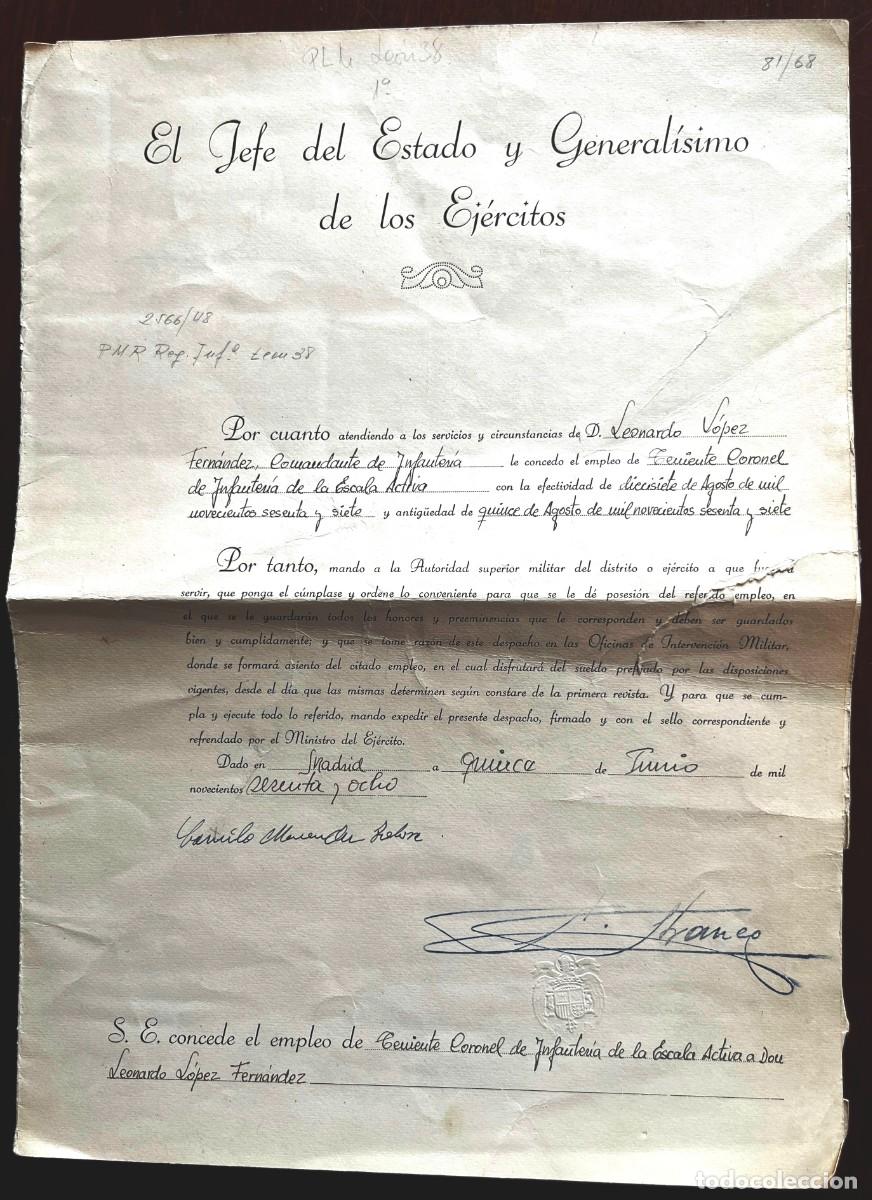 81/68
1º
El Jefe del Estado y Generalísimo
de los Ejércitos
2566/48
PMR Reg. Infª. León 38
Por cuanto atendiendo a los servicios y circunstancias de D. Leonardo López
Fernández, Comandante de Infantería le concedo el empleo de Teniente Coronel
de Infantería de la Escala Activa con la efectividad de diecisiete de Agosto de mil
novecientos sesenta y siete y antigüedad de quince de Agosto de mil novecientos sesenta y siete
Por tanto, mando a la Autoridad superior militar del distrito o ejército a que
servir, que ponga el cúmplase y ordene lo conveniente para que se le dé posesión del referido empleo, en
el que se le guardarán todos los honores y preeminencias que le corresponden y deben ser guardados
bien y cumplidamente; y que se tome razón de este despacho en las Oficinas de Intervención Militar,
donde se formará asiento del citado empleo, en el cual disfrutará del sueldo prefijado por las disposiciones
vigentes, desde el día que las mismas determinen según constare de la primera revista. Y para que se cum-
pla y ejecute todo lo referido, mando expedir el presente despacho, firmado y con el sello correspondiente y
refrendado por el Ministro del Ejército.
Dado en Madrid a quince de Junio de mil
novecientos sesenta y ocho
Camilo Menéndez Tolosa
F. Franco
S. E. concede el empleo de Teniente Coronel de Infantería de la Escala Activa a Don
Leonardo López Fernández
todocoleccion